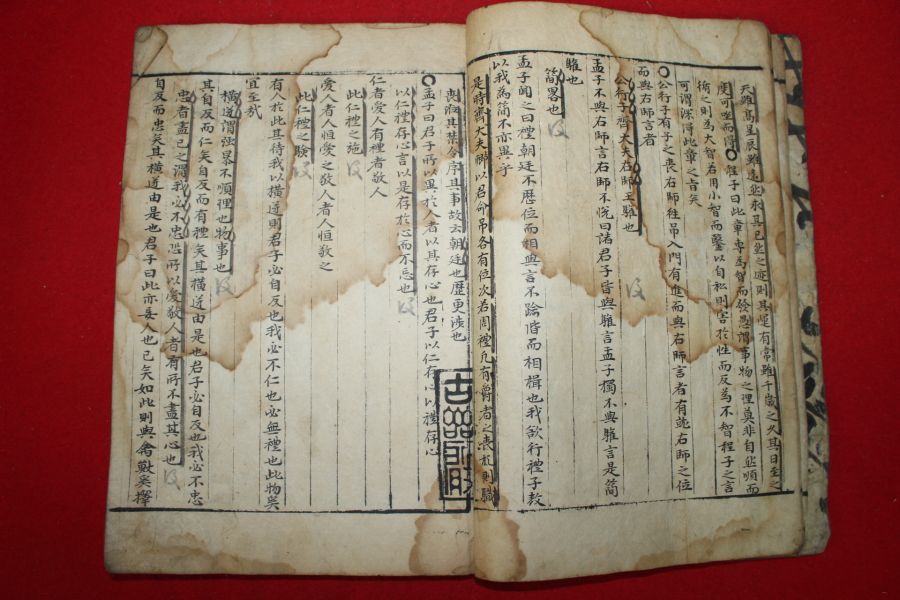 天雖高星辰雖遠然求其已然之迹則其運有常雖千歲之久其日至之
度可坐而得○程子曰此章專為智而發愚謂事物之理莫非自然順而
循之則為大智若用小智而鑿以自私則害於性而反為不智程子之言
可謂深得此章之旨矣
○公行子有子之喪右師往吊入門有進而與右師言者有就右師之位
而與右師言者
公行子齊大夫右師王驩也
孟子不與右師言右師不悅曰諸君子皆與驩言孟子獨不與驩言是簡
驩也
簡畧也
孟子聞之曰禮朝廷不歷位而相與言不踰階而相揖也我欲行禮子敖
以我為簡不亦異乎
是時齊大夫卿以君命吊各有位次若周禮凡有爵者之喪禮則職
喪涖其禁令序其事故云朝廷也歷更涉也
○孟子曰君子所以異於人者以其存心也君子以仁存心以禮存心
以仁禮存心言以是存於心而不忘也
仁者愛人有禮者敬人
此仁禮之施
愛人者人恒愛之敬人者人恒敬之
此仁禮之驗
有人於此其待我以橫逆則君子必自反也我必不仁也必無禮也此物奚
宜至哉
橫逆謂强暴不順理也物事也
其自反而仁矣自反而有禮矣其橫逆由是也君子必自反也我必不忠
忠者盡己之謂我必不忠恐所以愛敬人者有所不盡其心也
自反而忠矣其橫逆由是也君子曰此亦妄人也已矣如此則與禽獸奚擇